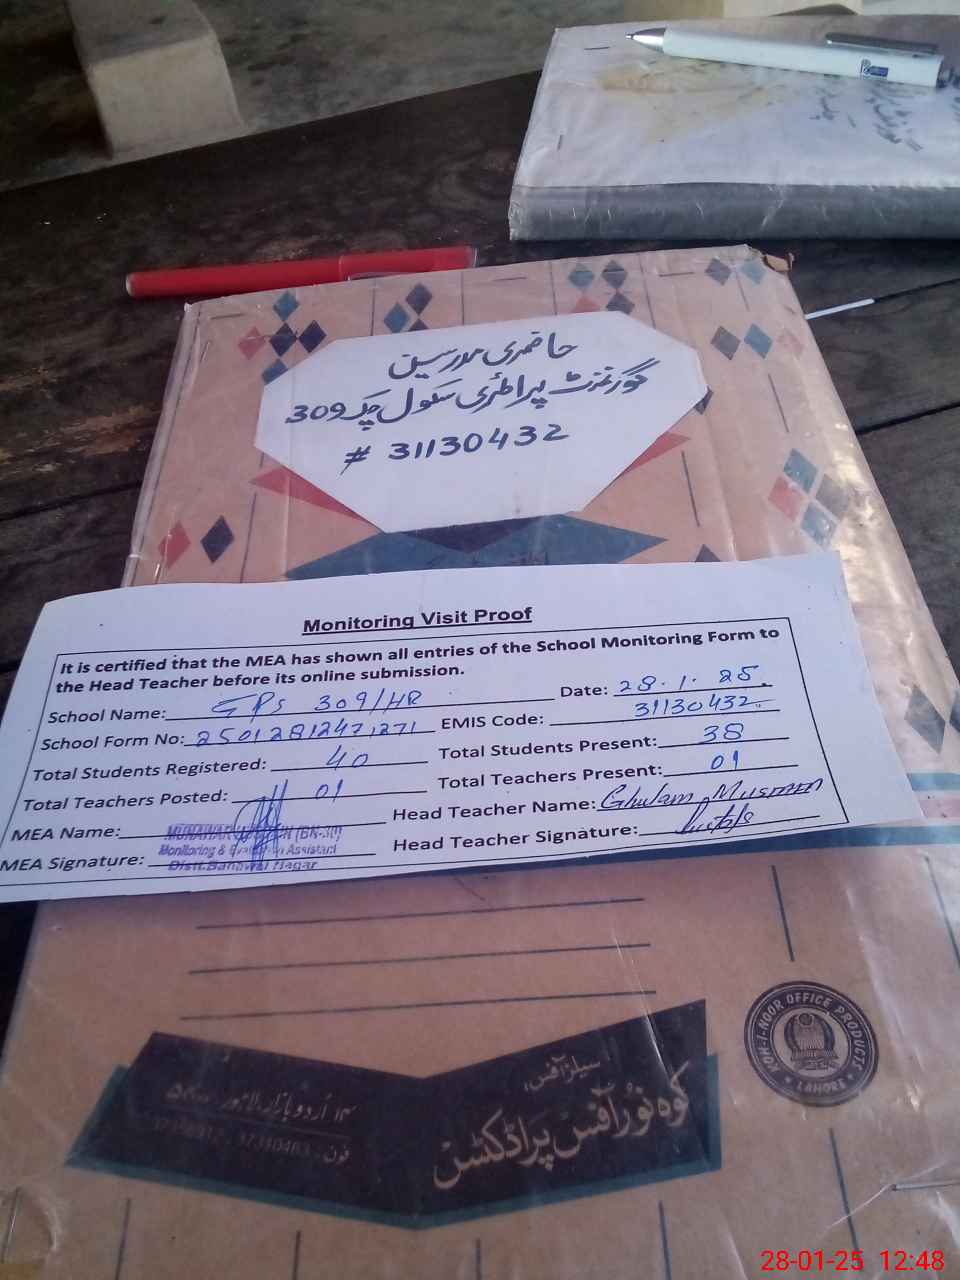 حاضری مدرسین
گورنمنٹ پرائمری سکول چک 309
# 31130432
Monitoring Visit Proof
It is certified that the MEA has shown all entries of the School Monitoring Form to
the Head Teacher before its online submission.
School Name: GPS 309/HR Date: 28.1.25.
School Form No: 2501281247,271 EMIS Code: 31130432
Total Students Registered: 40 Total Students Present: 38
Total Teachers Posted: 01 Total Teachers Present: 01
MEA Name: Head Teacher Name: Ghulam
MEA Signature: Head Teacher Signature:
Monitoring & Assistant
Distt. Bahawal Nagar
KOH-I-NOOR OFFICE PRODUCTS
LAHORE
سیلز آفس:
کوہ نور آفس پراڈکٹس
اُردو بازار لاہور
فون:
28-01-25 12:48